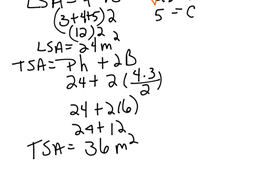 (3+4+5)2
5 = C
(12)2
LSA = 24 m²
TSA = Ph + 2B
24 + 2 (4·3/2)
24 + 2(6)
24 + 12
TSA = 36 m²